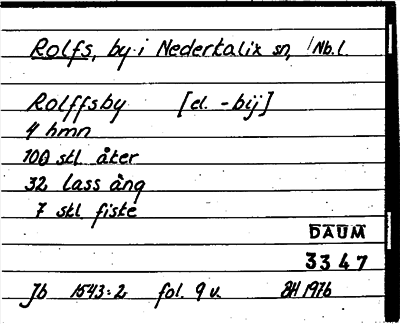 Rolfs, by i Nederkalix sn, Nb.l.
Rolffsby [el. -bij]
4 hmn
100 stl åter
32 lass äng
7 stl fiske
DAUM
3347
Jb 1543:2 fol. 9 v. BH 1976